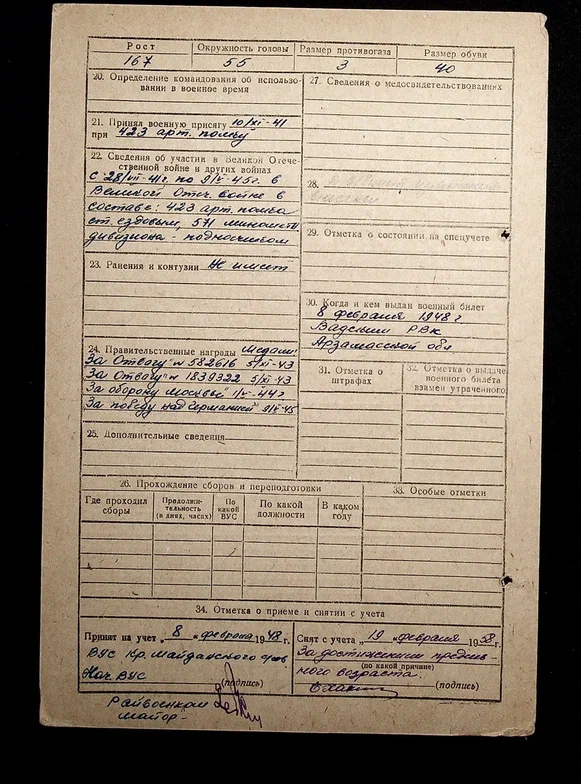 Рост
Окружность головы
Размер противогаза
Размер обуви
167
55
3
40
20. Определение командования об использо-
вании в военное время
21. Принял военную присягу 10/XI-41
при 423 арт. полку
22. Сведения об участии в Великой Отече-
ственной войне и других войнах
с 28/VII-41г. по 9/V-45г. в
Великой Отеч. войне в
составе: 423 арт. полка
ст. ездовым, 571 миномётн.
дивизиона - подносчиком
23. Ранения и контузии Не имеет
24. Правительственные награды Медали:
За Отвагу" № 582616 5/XI-43
За Отвагу" № 1839322 5/XI-43
За оборону Москвы" 1/V-44г
За победу над Германией" 9/V-45
25. Дополнительные сведения
27. Сведения о медосвидетельствованиях
28.
29. Отметка о состоянии на спецучете
30. Когда и кем выдан военный билет
8 февраля 1948 г
Вадским РВК
Арзамасской обл
31. Отметка о
штрафах
32. Отметка о выдаче
военного билета
взамен утраченного
26. Прохождение сборов и переподготовки
Где проходил
сборы
Продолжи-
тельность
(в днях, часах)
По
какой
ВУС
По какой
должности
В каком
году
33. Особые отметки
34. Отметка о приеме и снятии с учета
Принят на учет „ 8 " февраля 1948 г.
ВУС Кр. Майданского
Нач ВУС
(подпись)
Райвоенком
майор -
Снят с учета „ 19 " февраля 1958 г.
За достижением предель-
(по какой причине)
ного возраста
(подпись)